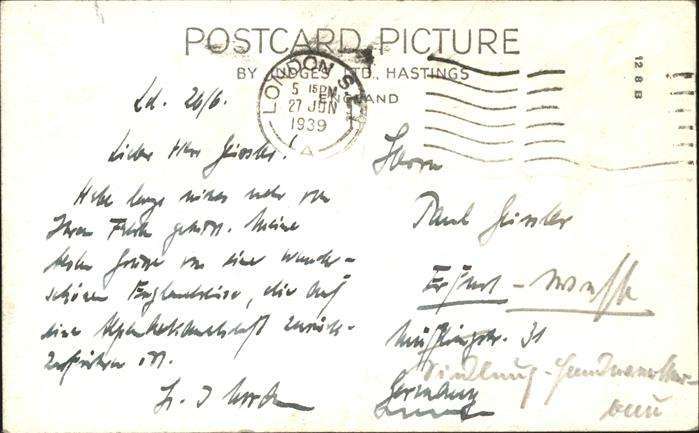 POSTCARD PICTURE
BY JUDGES LTD, HASTINGS
ENGLAND
LONDON S.E.1
5 15 PM
27 JUN
1939
A
12 8 B
Ld. 26/6.
Lieber Herr Geissler!
Habe lange nichts mehr von
Ihren gehört. Meine
besten Grüße von einer wunder-
schönen Englandreise, die auf
eine Alpenbekanntschaft zurück-
zuführen ist.
Herrn
Paul Geissler
Erfurt - West
31
Siedlung -
Germany